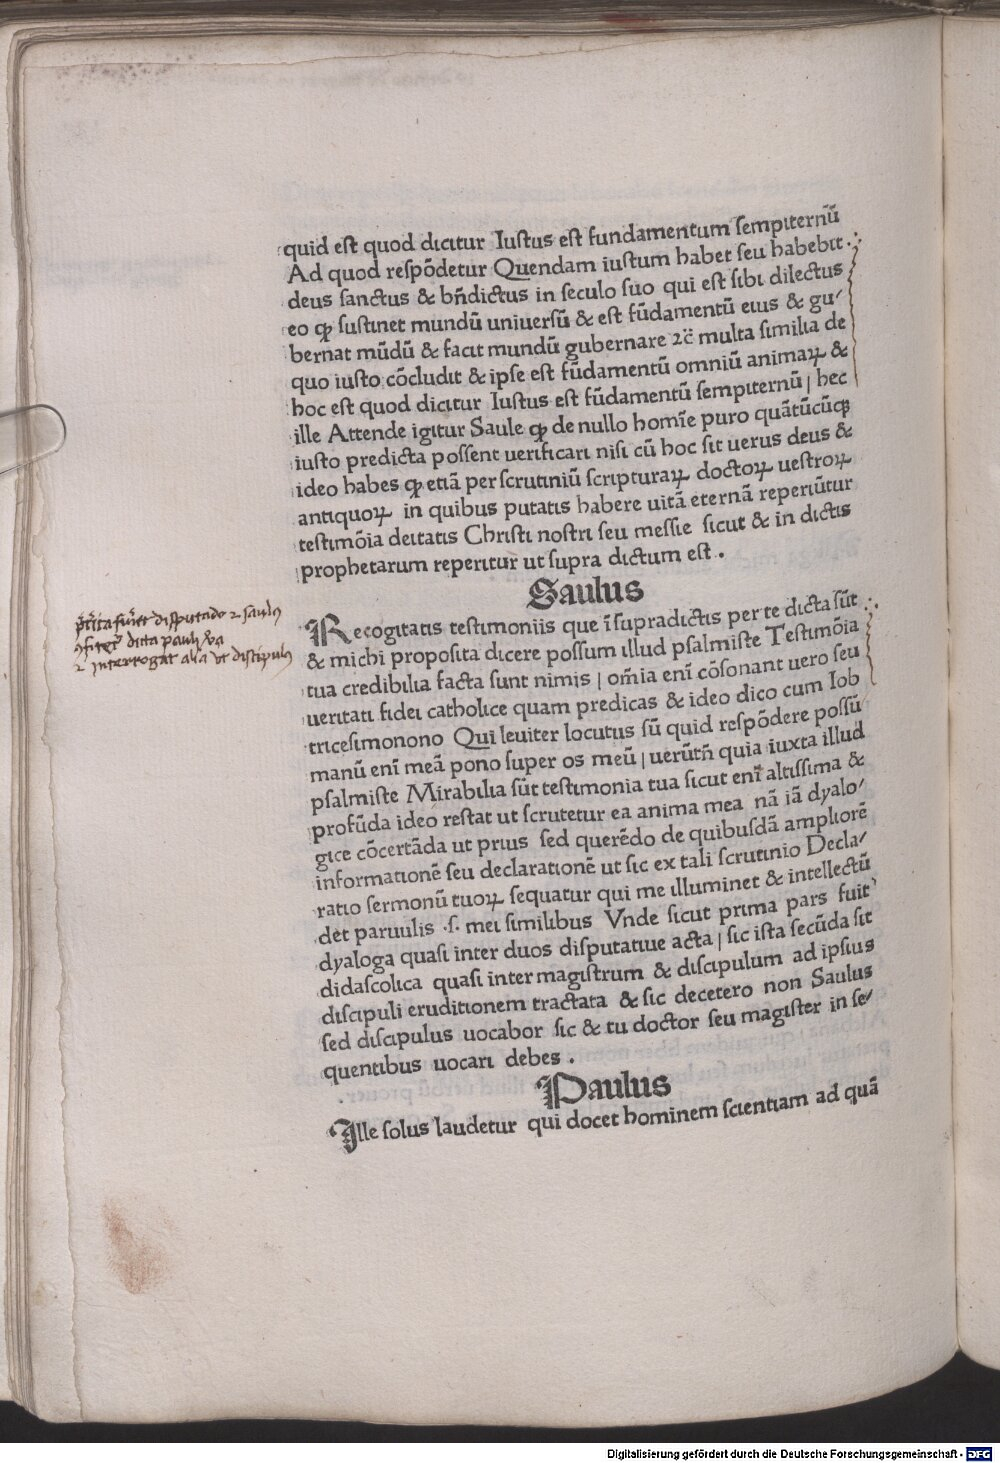 quid est quod dicitur Iustus est fundamentum sempiternũ
Ad quod respõdetur Quendam iustum habet seu habebit
deus sanctus & bñdictus in seculo suo qui est sibi dilectus
eo ꝙ sustinet mundũ universũ & est fũdamentũ eius & gu⸗
bernat mũdũ & facit mundũ gubernare ⁊c̃ multa similia de
quo iusto cõcludit & ipse est fũdamentũ omniũ animaꝝ &
hoc est quod dicitur Iustus est fũdamentũ sempiternũ | hec
ille Attende igitur Saule ꝙ de nullo homĩe puro quãtũcũqꝫ
iusto predicta possent uerificari nisi cũ hoc sit uerus deus &
ideo habes ꝙ etiã per scrutiniũ scripturaꝝ doctoꝝ uestroꝝ
antiquoꝝ in quibus putatis habere uitã eternã reperiũtur
testimõia deitatis Christi nostri seu messie sicut & in dictis
prophetarum reperitur ut supra dictum est .
Saulus
Recogitatis testimoniis que ĩ supradictis per te dicta sũt
& michi proposita dicere possum illud psalmiste Testimõia
tua credibilia facta sunt nimis | om̃ia enĩ cõsonant uero seu
ueritati fidei catholice quam predicas & ideo dico cum Iob
tricesimonono Qui leuiter locutus sũ quid respõdere possũ
manũ enĩ meã pono super os meũ | uerũtñ quia iuxta illud
psalmiste Mirabilia sũt testimonia tua sicut enĩ altissima &
profũda ideo restat ut scrutetur ea anima mea nã iã dyalo⸗
gice cõcertãda ut prius sed querẽdo de quibusdã ampliorẽ
informationẽ seu declarationẽ ut sic ex tali scrutinio Decla⸗
ratio sermonũ tuoꝝ sequatur qui me illuminet & intellectũ
det paruulis .s. mei similibus Vnde sicut prima pars fuit
dyaloga quasi inter duos disputatiue acta | sic ista secũda sit
didascolica quasi inter magistrum & discipulum ad ipsius
discipuli eruditionem tractata & sic decetero non Saulus
sed discipulus uocabor sic & tu doctor seu magister in se⸗
quentibus uocari debes .
Paulus
Ille solus laudetur qui docet hominem scientiam ad quã
disputado ⁊ saulus
dicta pauli
⁊ interrogat alia ut discipulus
Digitalisierung gefördert durch die Deutsche Forschungsgemeinschaft - DFG